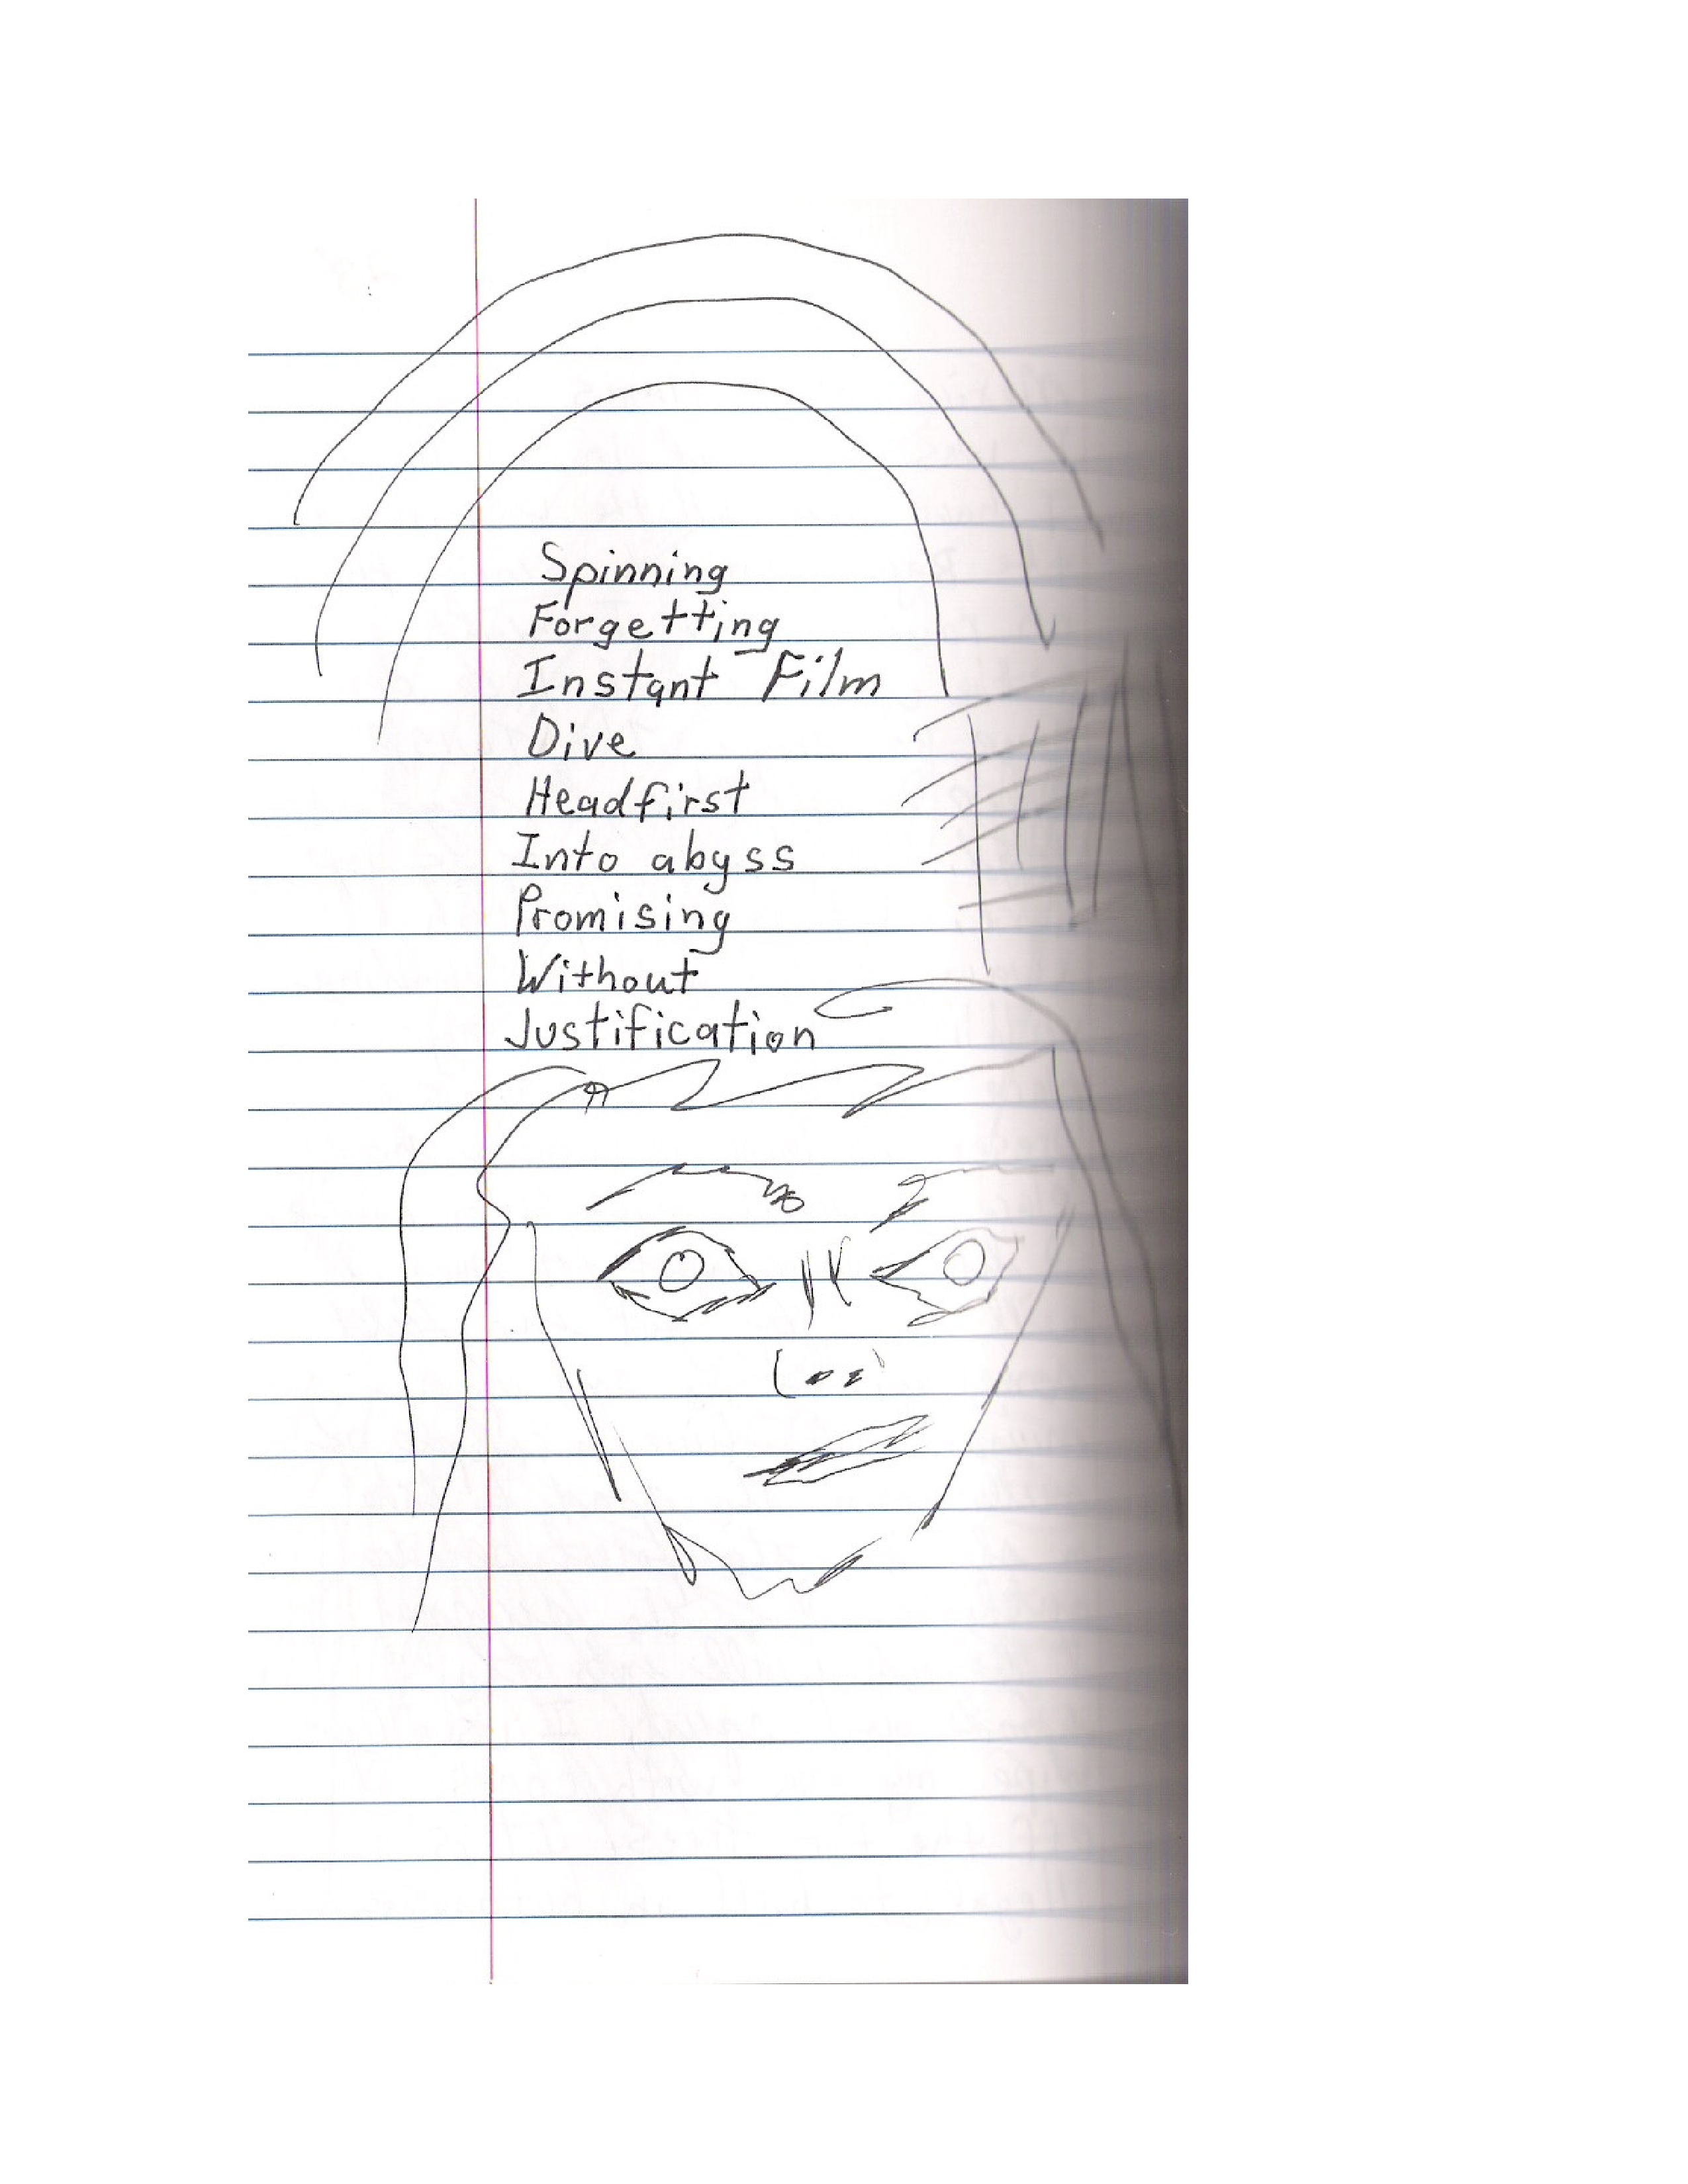 Spinning
Forgetting
Instant Film
Dive
Headfirst
Into abyss
Promising
Without
Justification